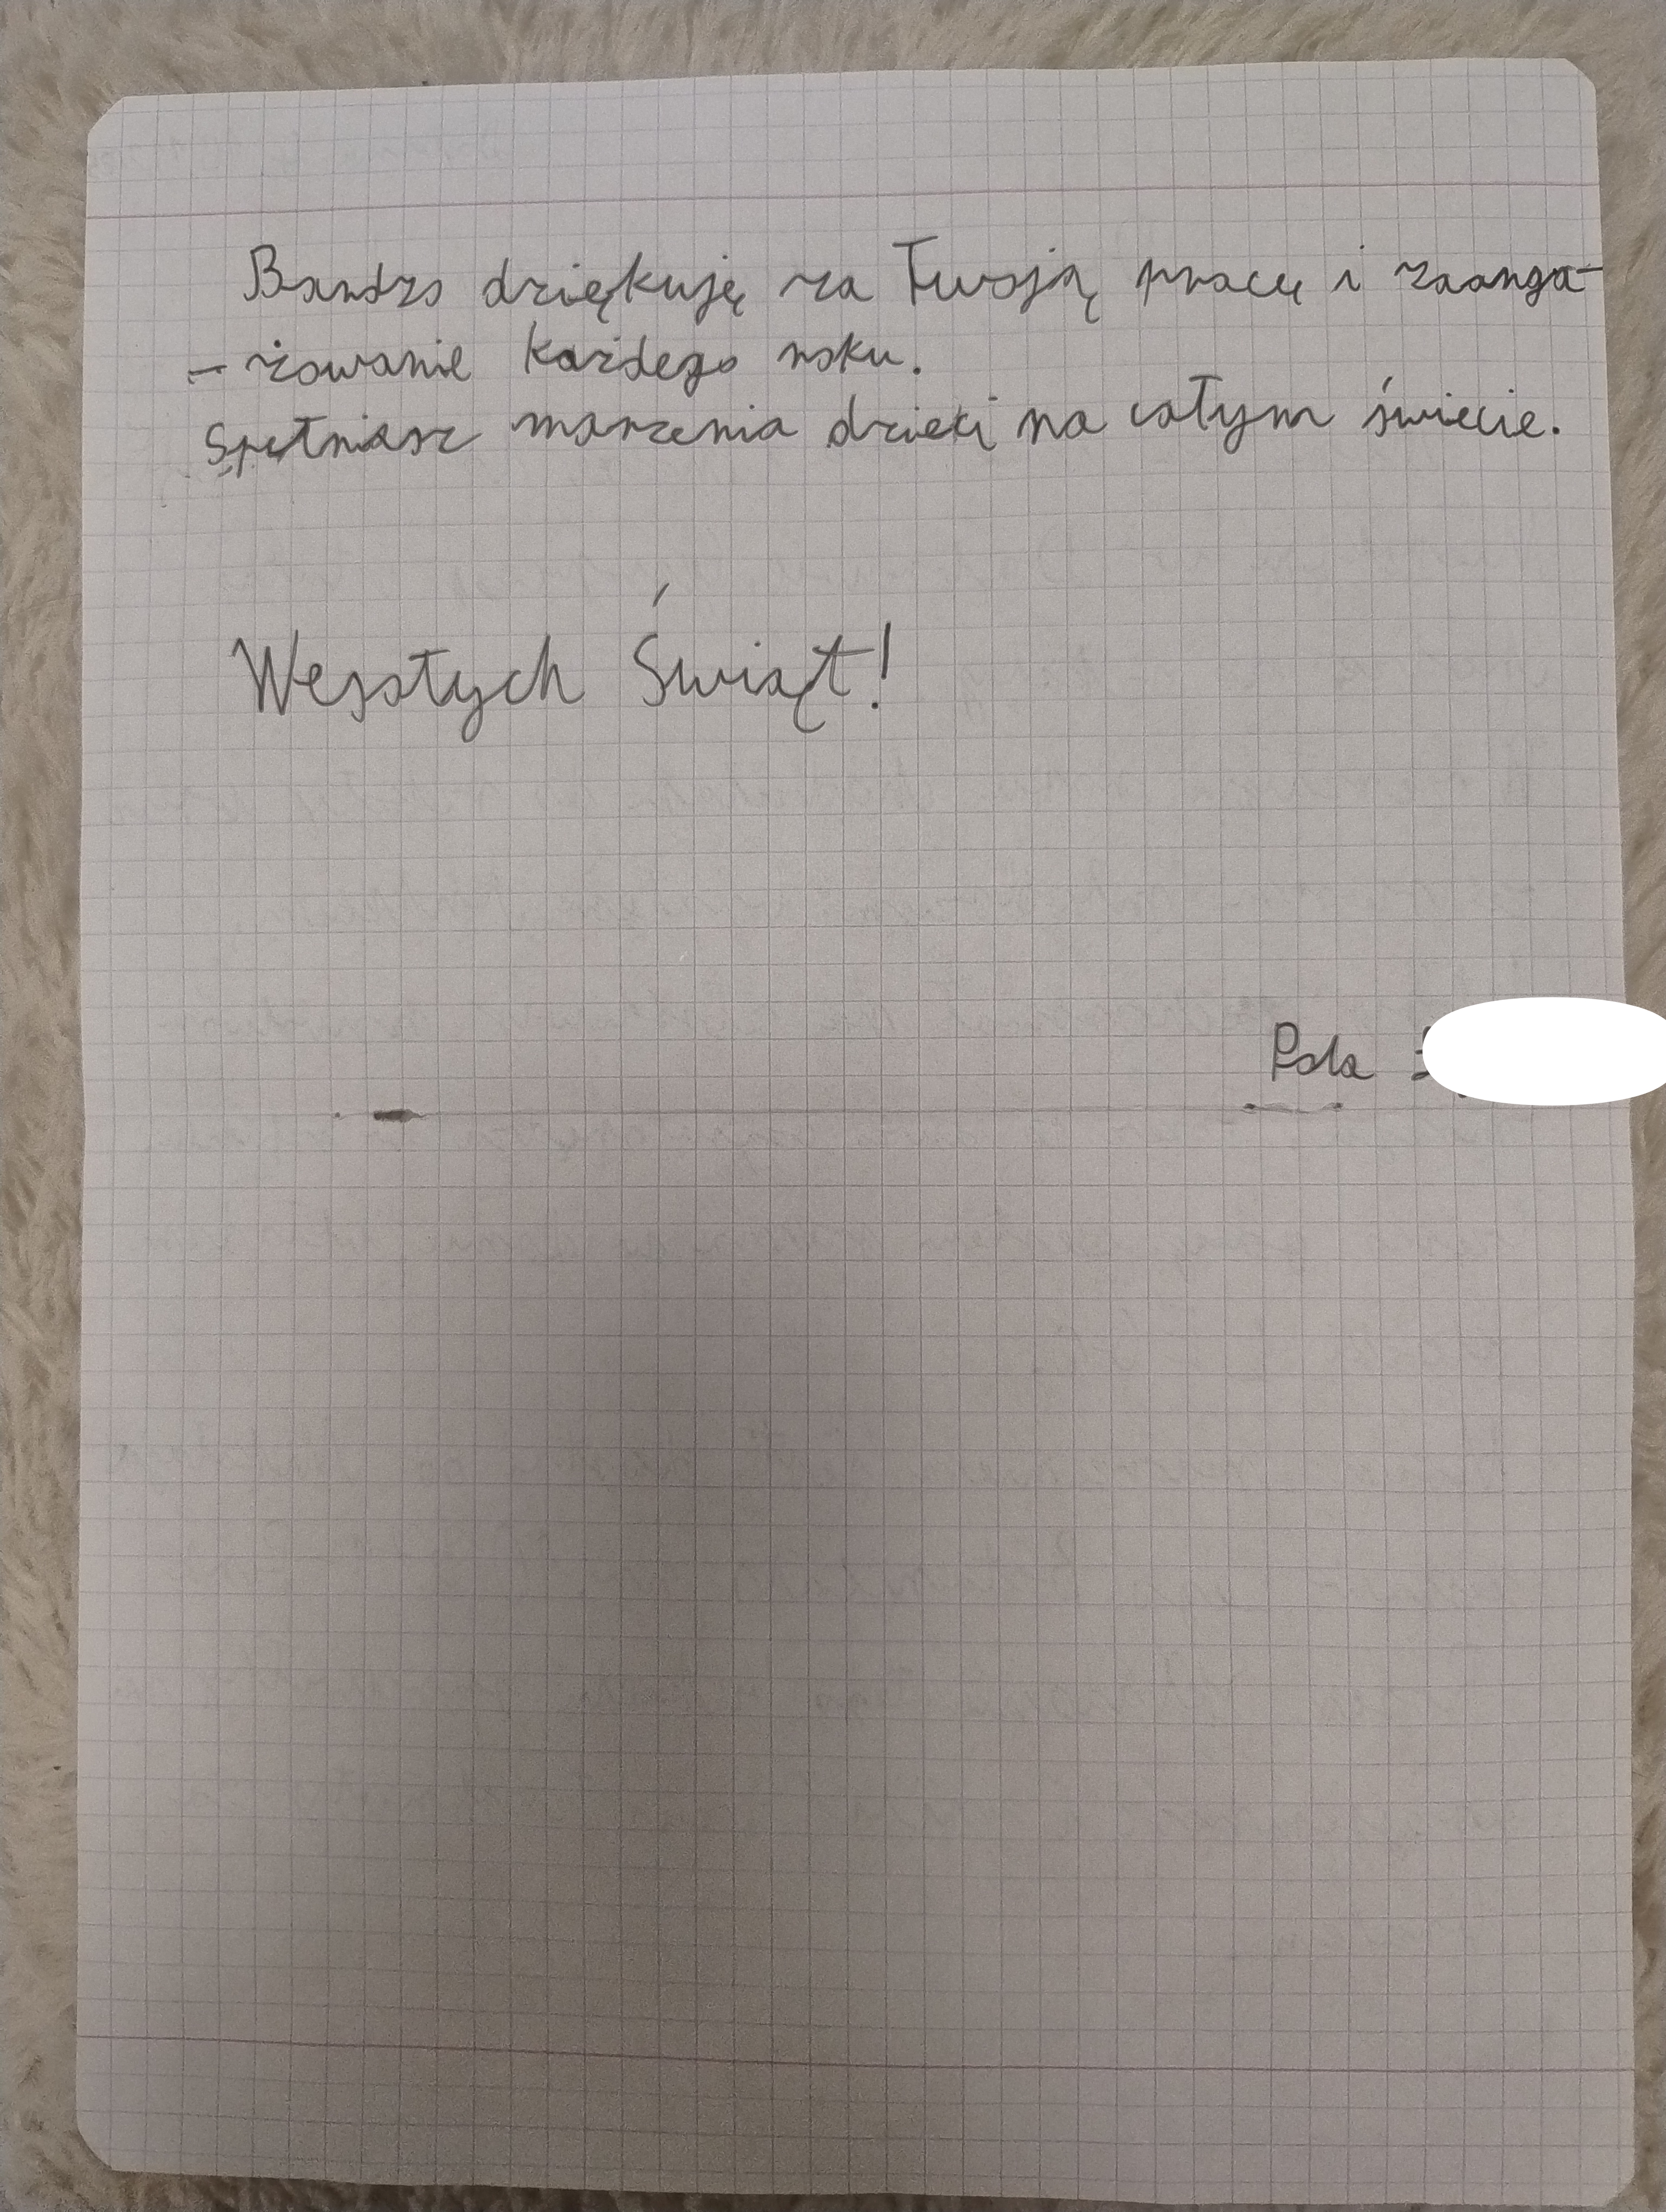 Bardzo dziękuję za Twoją pracę i zaanga-
-żowanie każdego roku.
Spełniasz marzenia dzieci na całym świecie.
Wesołych Świąt!
Pola